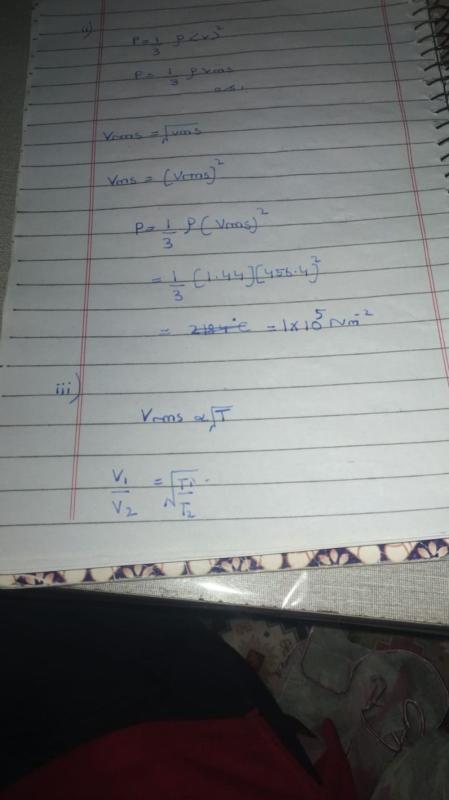 ii)
P = 1/3 ρ <v>²
P = 1/3 ρ vms
Vrms = √vms
Vms = (Vrms)²
P = 1/3 ρ (Vrms)²
= 1/3 (1.44)(456.4)²
= = 1×10⁵ Nm⁻²
iii)
Vrms ∝ √T
V₁/V₂ = √T₁/T₂